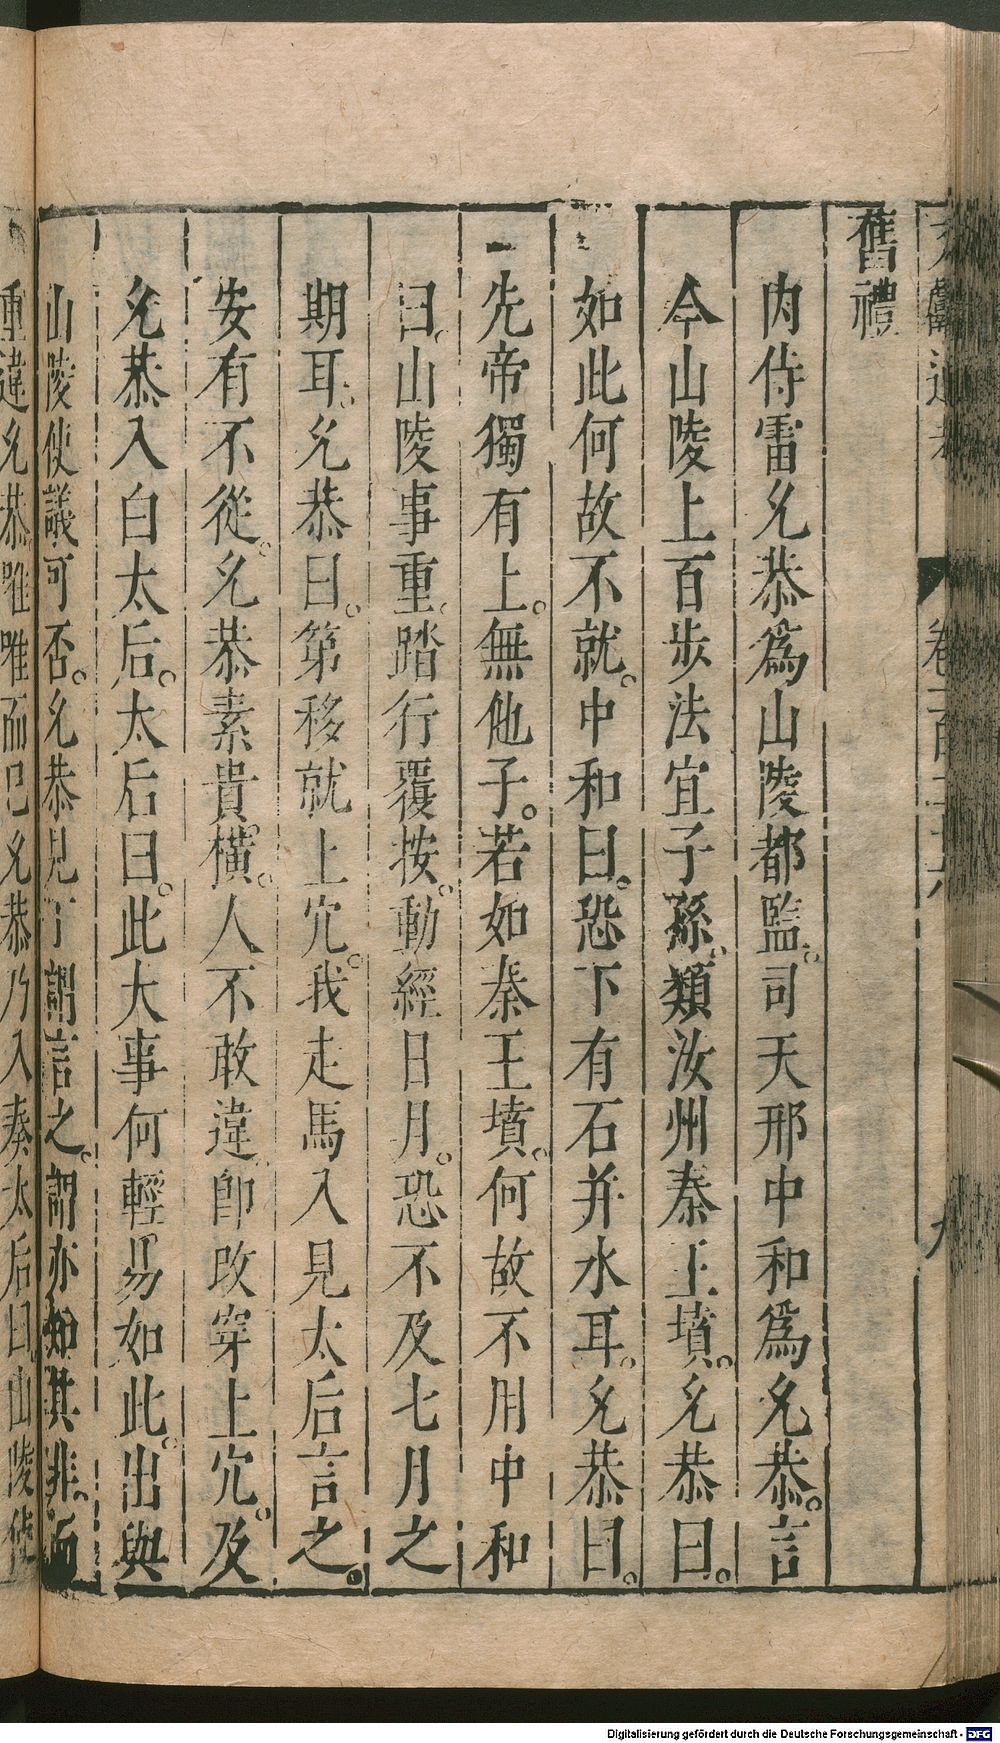 文獻通考 卷一百二十六 九
舊禮
內侍雷允恭爲山陵都監。司天邢中和爲允恭。言
今山陵上百步法宜子孫。類汝州秦王墳。允恭曰。
如此何故不就。中和曰。恐下有石并水耳。允恭曰。
先帝獨有上。無他子。若如秦王墳。何故不用中和
曰。山陵事重。踏行覆按。動經日月。恐不及七月之
期耳。允恭曰。第移就上穴。我走馬入見太后言之。
安有不從。允恭素貴橫。人不敢違。卽改穿上穴。及
允恭入白太后。太后曰。此大事何輕易如此。出與
山陵使議可否。允恭見丁謂言之。謂亦知其非。而
重違允恭唯唯而已允恭乃入奏太后曰山陵使
Digitalisierung gefördert durch die Deutsche Forschungsgemeinschaft - DFG